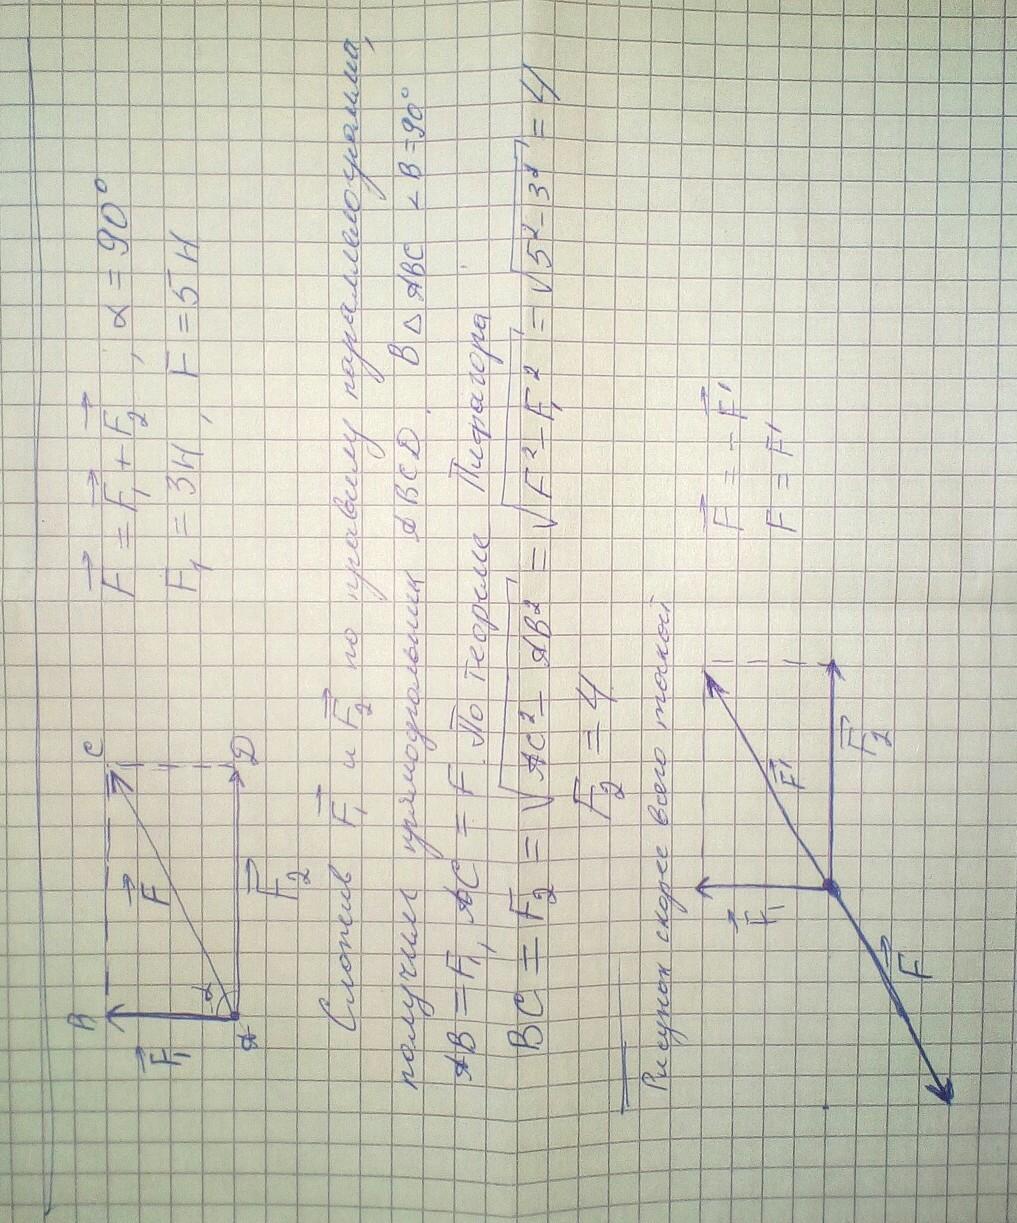 B
C
F₁
F
α
A
F₂
D
F = F₁ + F₂, α = 90°
F₁ = 3Н, F = 5Н
Сложив F₁ и F₂ по правилу параллелограмма,
получим прямоугольник ABCD. В △ ABC ∠B = 90°
AB = F₁, AC = F. По теореме Пифагора
BC = F₂ = √AC² - AB² = √F² - F₁² = √5² - 3² = 4
F₂ = 4
Рисунок скорее всего такой
F₁
F'
F₂
F
F = - F'
F = F'